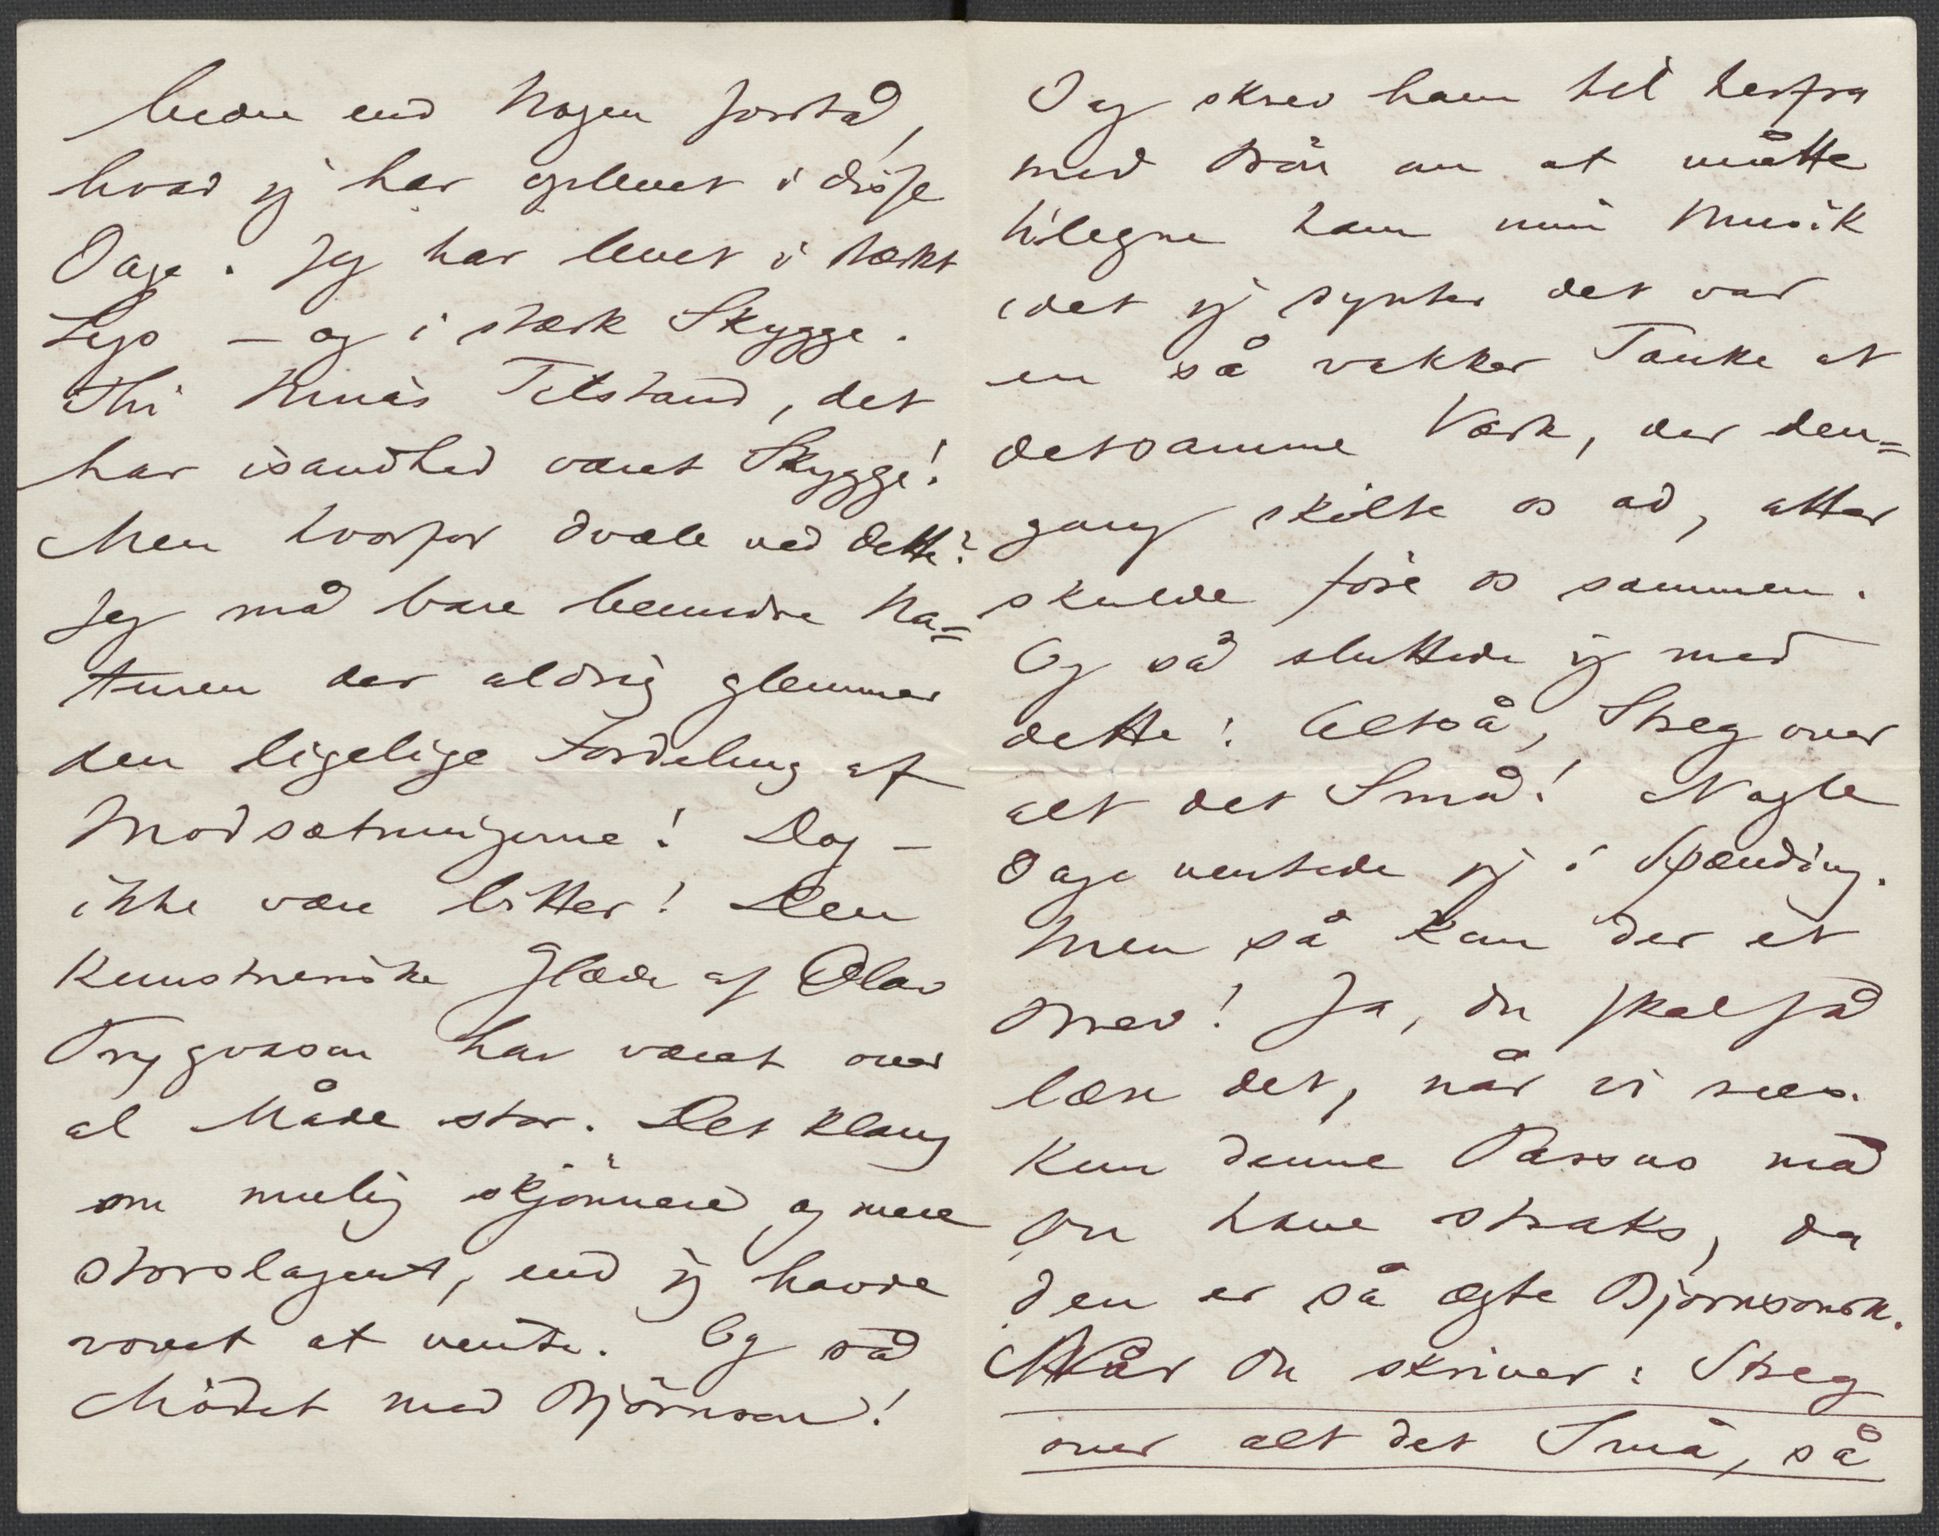 bedre end Nogen forstå,
hvad jeg har oplevet i disse
Dage. Jeg har levet i stærkt
Lys — og i stærk Skygge.
Thi Ninas Tilstand, det
har isandhed været Skygge!
Men hvorfor dvæle ved dette?
Jeg må bare beundre Na=
turen der aldrig glemmer
den ligelige Fordeling af
Modsætningerne! Dog —
ikke være bitter! Den
kunstneriske Glæde af Olav
Trygvason har været over
al Måde stor. Det klang
om mulig skjönnere og mere
storslagent, end jeg havde
vovet at vente. Og så
Mödet med Björnson!
Jeg skrev ham til herfra
med Bön om at måtte
tilegne ham min Musik
idet jeg syntes det var
en så vakker Tanke at
detsamme Værk, der den=
gang skilte os ad, atter
skulde före os sammen.
Og så sluttede jeg med
dette: Altså, Streg over
alt det Små! Nogle
Dage ventede jeg i Spænding.
Men så kom der et
Brev! Ja, du skal få
læse det, når vi sees.
Kun denne Passus må
Du have straks, da
den er så ægte Björnsonsk.
Når Du skriver: Streg
over alt det Små, så